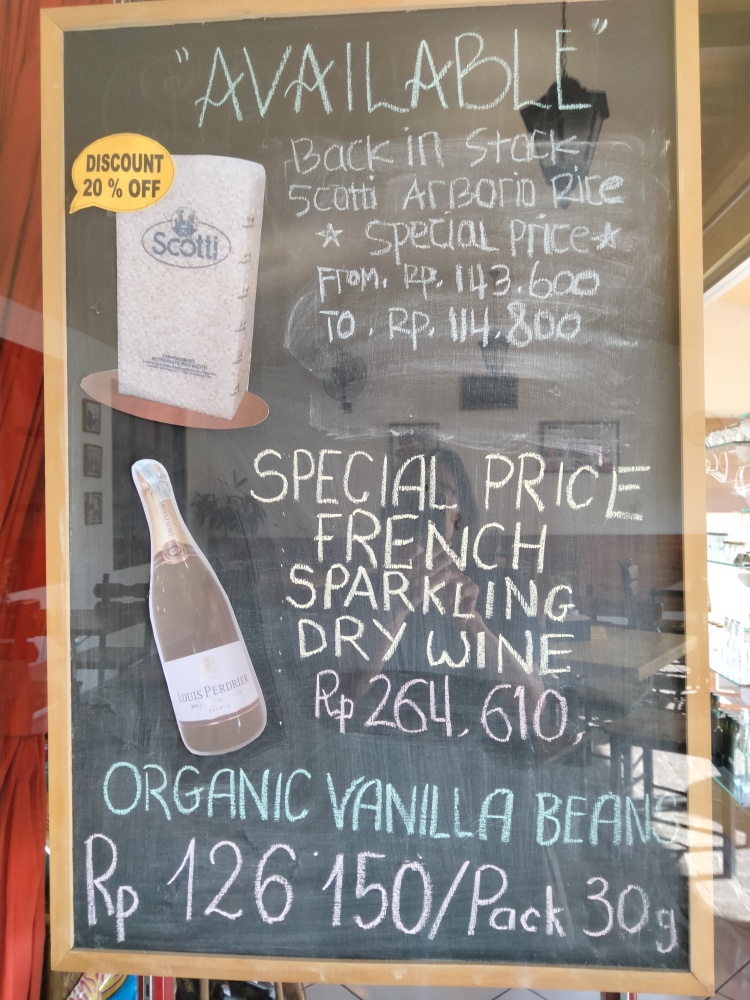 "AVAILABLE"
DISCOUNT
20 % OFF
Scotti
Back in Stock
Scotti Arborio Rice
☆ Special Price ☆
From. Rp. 143.600
To. Rp. 114.800
SPECIAL PRICE
FRENCH
SPARKLING
DRY WINE
Rp 264.610,
LOUIS PERDRIER
ORGANIC VANILLA BEANS
Rp 126.150/Pack 30g